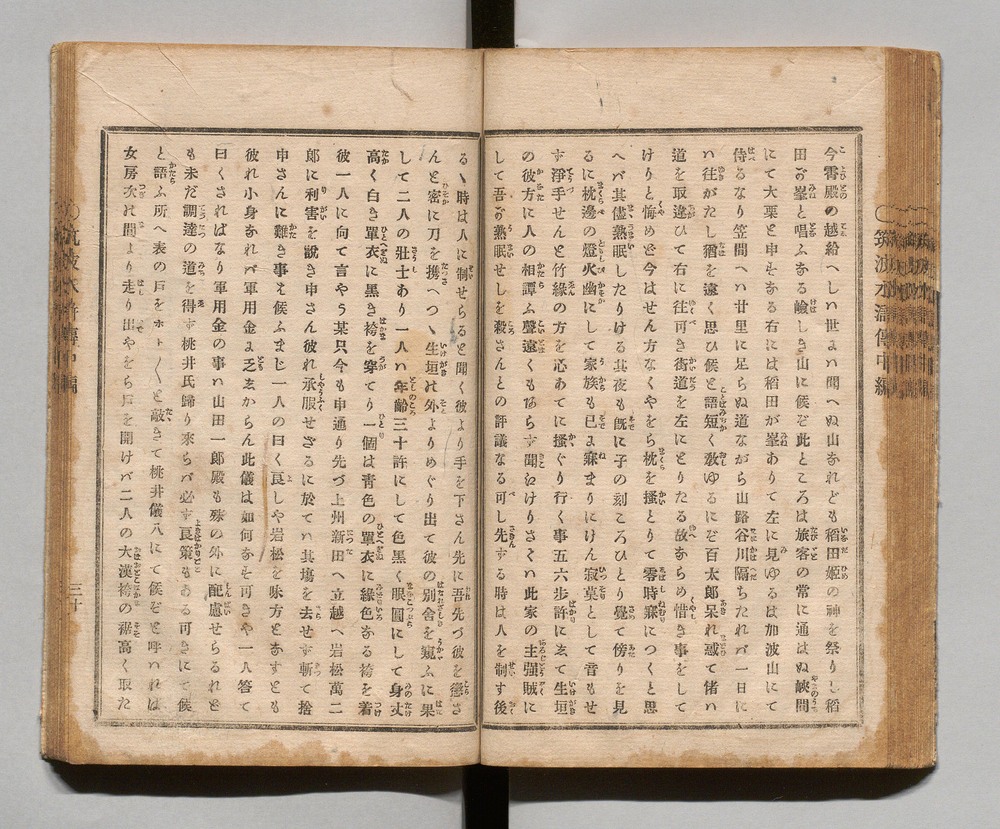 筑波水滸傳中編
今零殿の越給へしい世まハ聞へぬ山なれども稻田姫の神を祭りし稻
田が峯と唱ふなる嶮しき山に候ぞ此ところは旅客の常に通はぬ峽間
にて大栗と申なる右には稻田が峯ありて左に見ゆるは加波山にて
侍るなり笠間へハ廿里に足らぬ道ながら山路谷川隔ちたれバ一日に
ハ往がたし猶を遠く思ひ候と語短く敎ゆるにぞ百太郎呆れ惑て偖ハ
道を取違ひて右に往可き街道を左にとりたる故ならめ惜き事をして
けりと悔めど今はせん方なくやをら枕を搔とりて零時寐につくと思
へバ其儘熟眠したりける其夜も既に子の刻ころひとり覺て傍りを見
るに枕邊の燈火幽にして家族も已ま寐まりにけん寂寞として音もせ
ず淨手せんと竹緣の方を心あてに搔ぐり行く事五六歩許にゑて生垣
の彼方に人の相譚ふ聲遠くもあらず聞にけりさてハ此家の主强賊に
して吾が熟眠せしを殺さんとの評議なる可し先ずる時は人を制す後
るゝ時は人に制せらると聞く彼より手を下さん先に吾先づ彼を懲さ
んと密に刀を携へつゝ生垣の外よりめぐり出て彼の別舍を窺ふに果
して二人の壯士あり一人ハ年齡三十許にして色黑く眼圓にして身丈
高く白き單衣に黑き袴を穿てり一個は靑色の單衣に綠色なる袴を着
彼一人に向て言やう某只今も申通り先づ上州新田へ立越へ岩松萬二
郎に利害を說き申さん彼れ承服せざるに於てハ其場を去せず斬て捨
申さんに難き事ま候ふまじ一人の曰く良しや岩松を味方となすとも
彼れ小身なれバ軍用金ま乏ゑからん此儀は如何なそ可きや一人答て
曰くさればなり軍用金の事ハ山田一郎殿も殊の外に配慮せらるれど
も未だ調達の道を得ず桃井氏歸り來らバ必ず良策もある可きにて候
と語ふ所へ表の戸をホト〱と敲きて桃井儀八にて候ぞと呼ハれは
女房次の間より走り出やをら戸を開けバ二人の大漢袴の裾高く取た
筑波水滸傳中編
三十